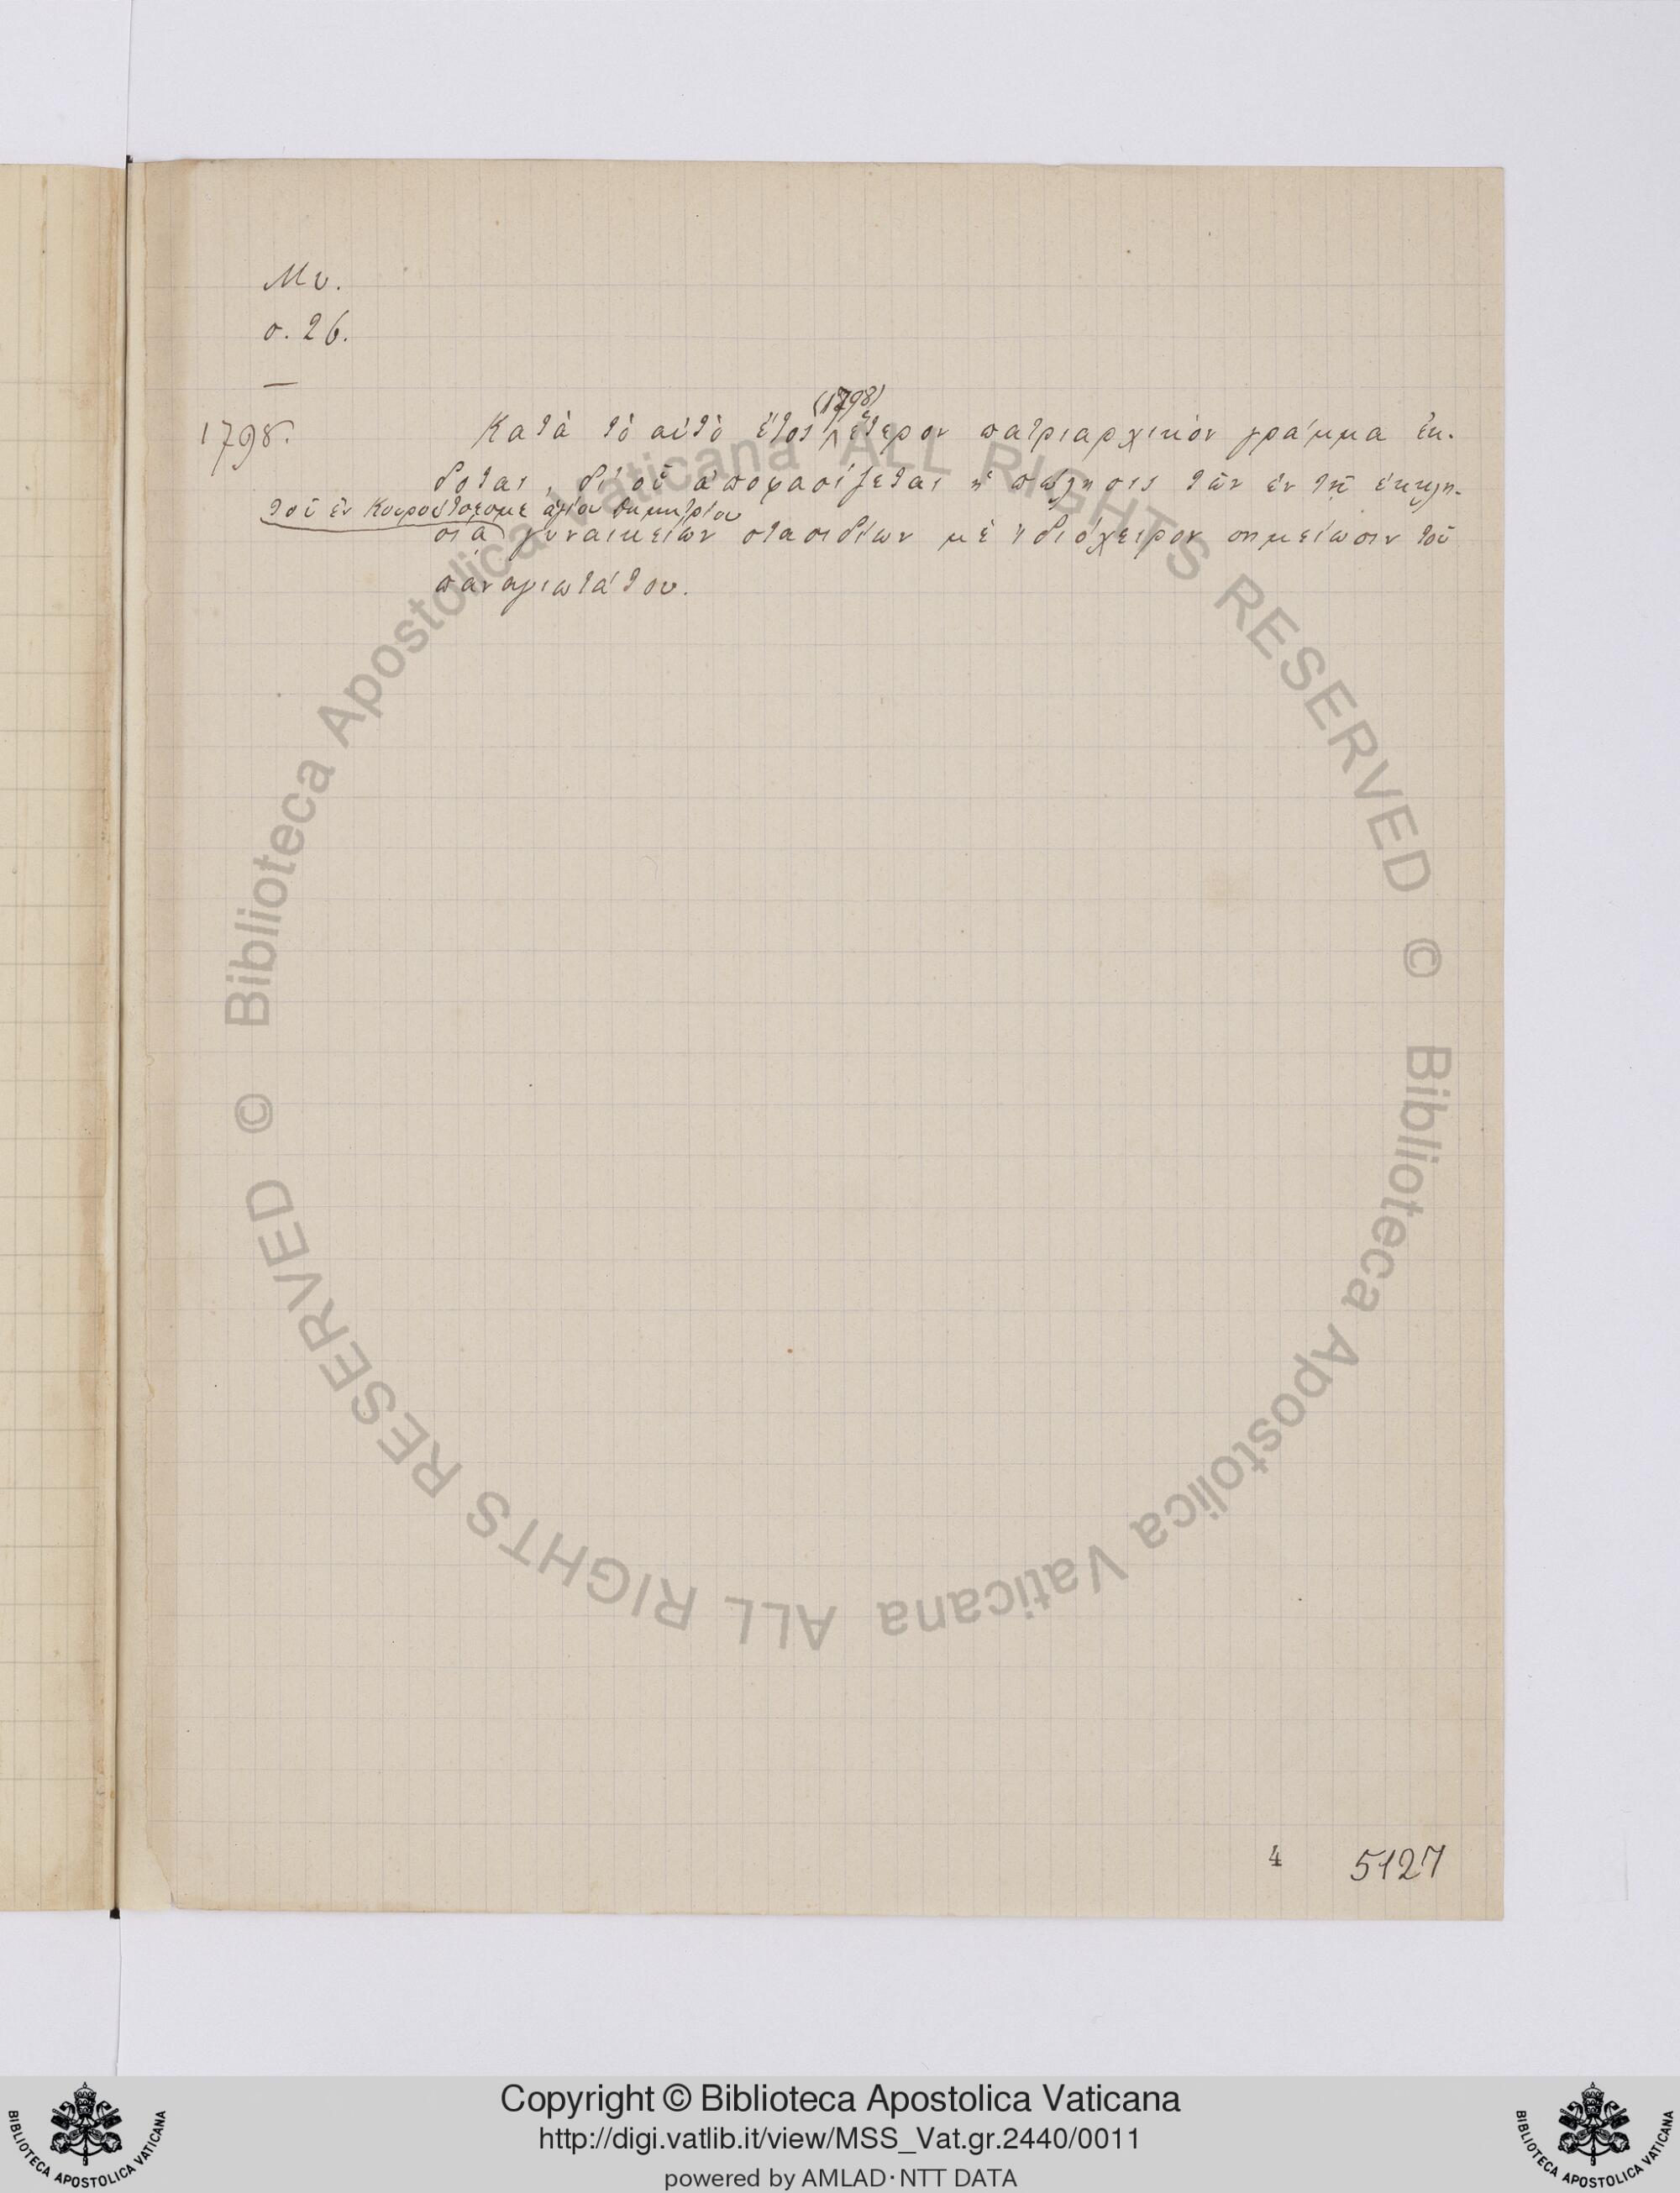 Μν.
σ. 26.
1798.
(1798)
Κατὰ τὸ αὐτὸ ἔτος ἕτερον πατριαρχικὸν γράμμα ἐκ-
δοται, δι' οὗ ἀποφασίζεται ἡ πώλησις τῶν ἐν τῇ ἐκκλη-
τοῦ ἐν Κουρούτσεσμε ἁγίου Δημητρίου
σίᾳ γυναικείων στασιδίων μὲ ἰδιόχειρον σημείωσιν τοῦ
παναγιωτάτου.
4 5127
© Biblioteca Apostolica Vaticana ALL RIGHTS RESERVED
© Biblioteca Apostolica Vaticana ALL RIGHTS RESERVED
Copyright © Biblioteca Apostolica Vaticana
http://digi.vatlib.it/view/MSS_Vat.gr.2440/0011
powered by AMLAD·NTT DATA
BIBLIOTECA APOSTOLICA VATICANA
BIBLIOTECA APOSTOLICA VATICANA